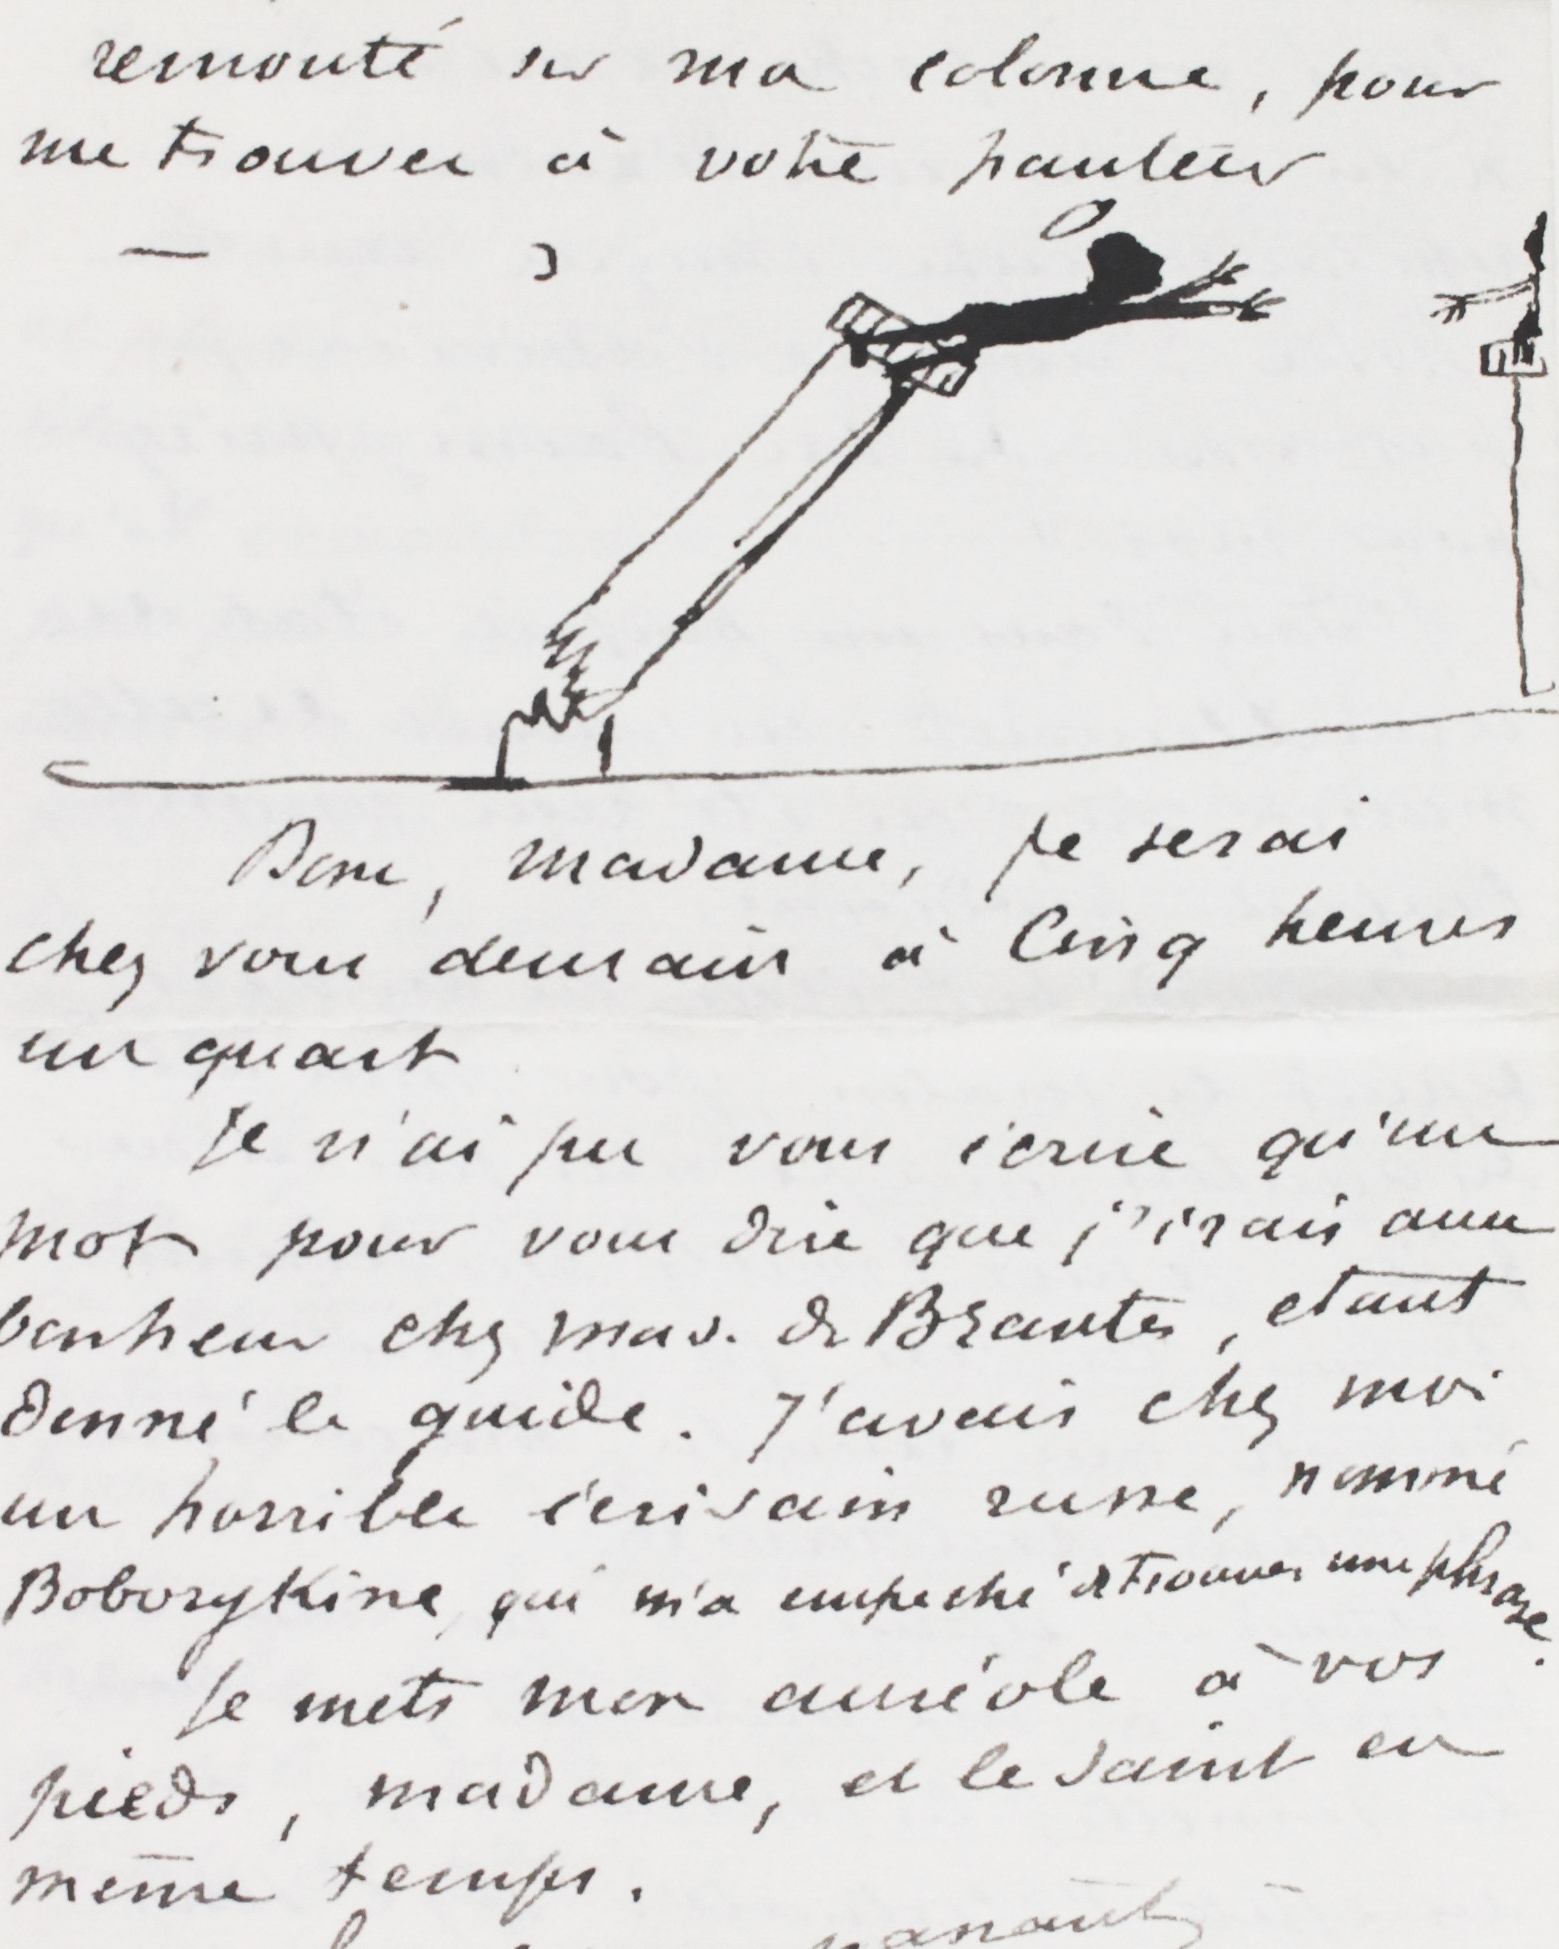 remonté sur ma colonne, pour
me trouver à votre hauteur
Donc, madame, je serai
chez vous demain à Cinq heures
un quart
Je n'ai pu vous écrire qu'un
mot pour vous dire que j'irais avec
bonheur chez mad. de Brantes, étant
donné le guide. J'avais chez moi
un horrible écrivain russe, nommé
Boborykine, qui m'a empeché de trouver une phrase.
Je mets mon auréole à vos
pieds, madame, et le Saint en
même temps.